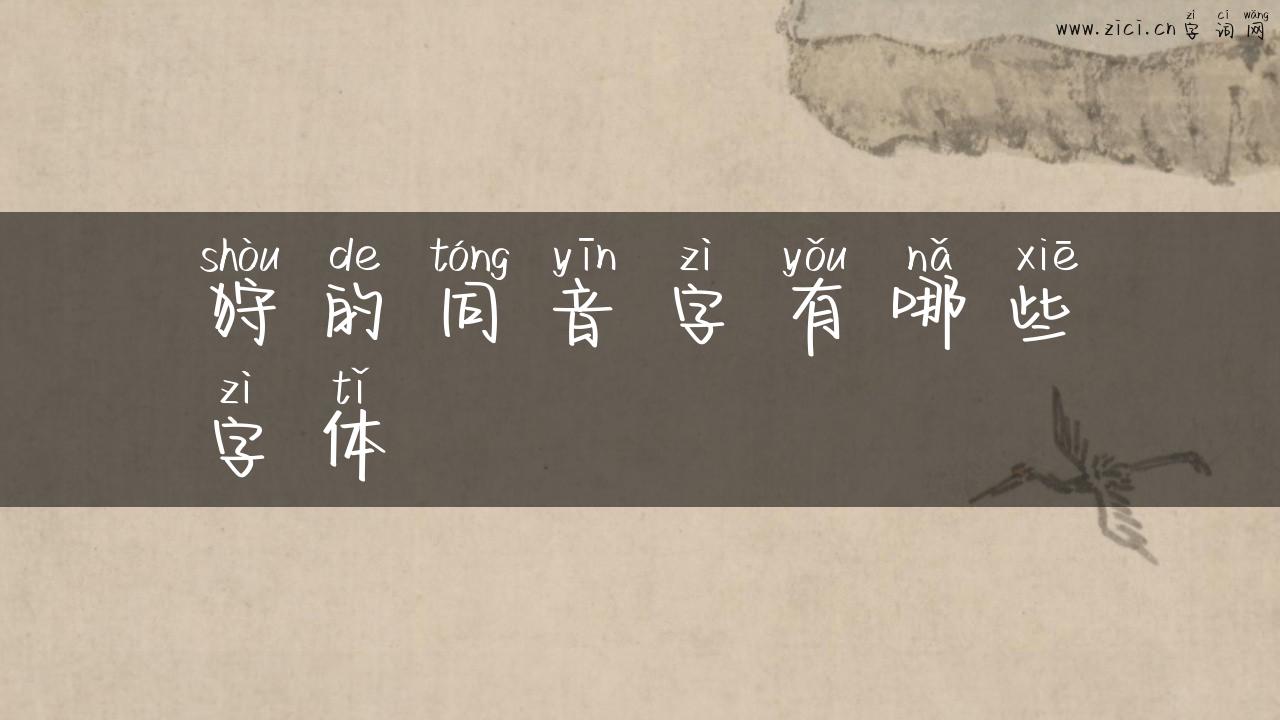 zì cí wǎng
www.zici.cn字词网
shòu de tóng yīn zì yǒu nǎ xiē
狩的同音字有哪些
zì tǐ
字体